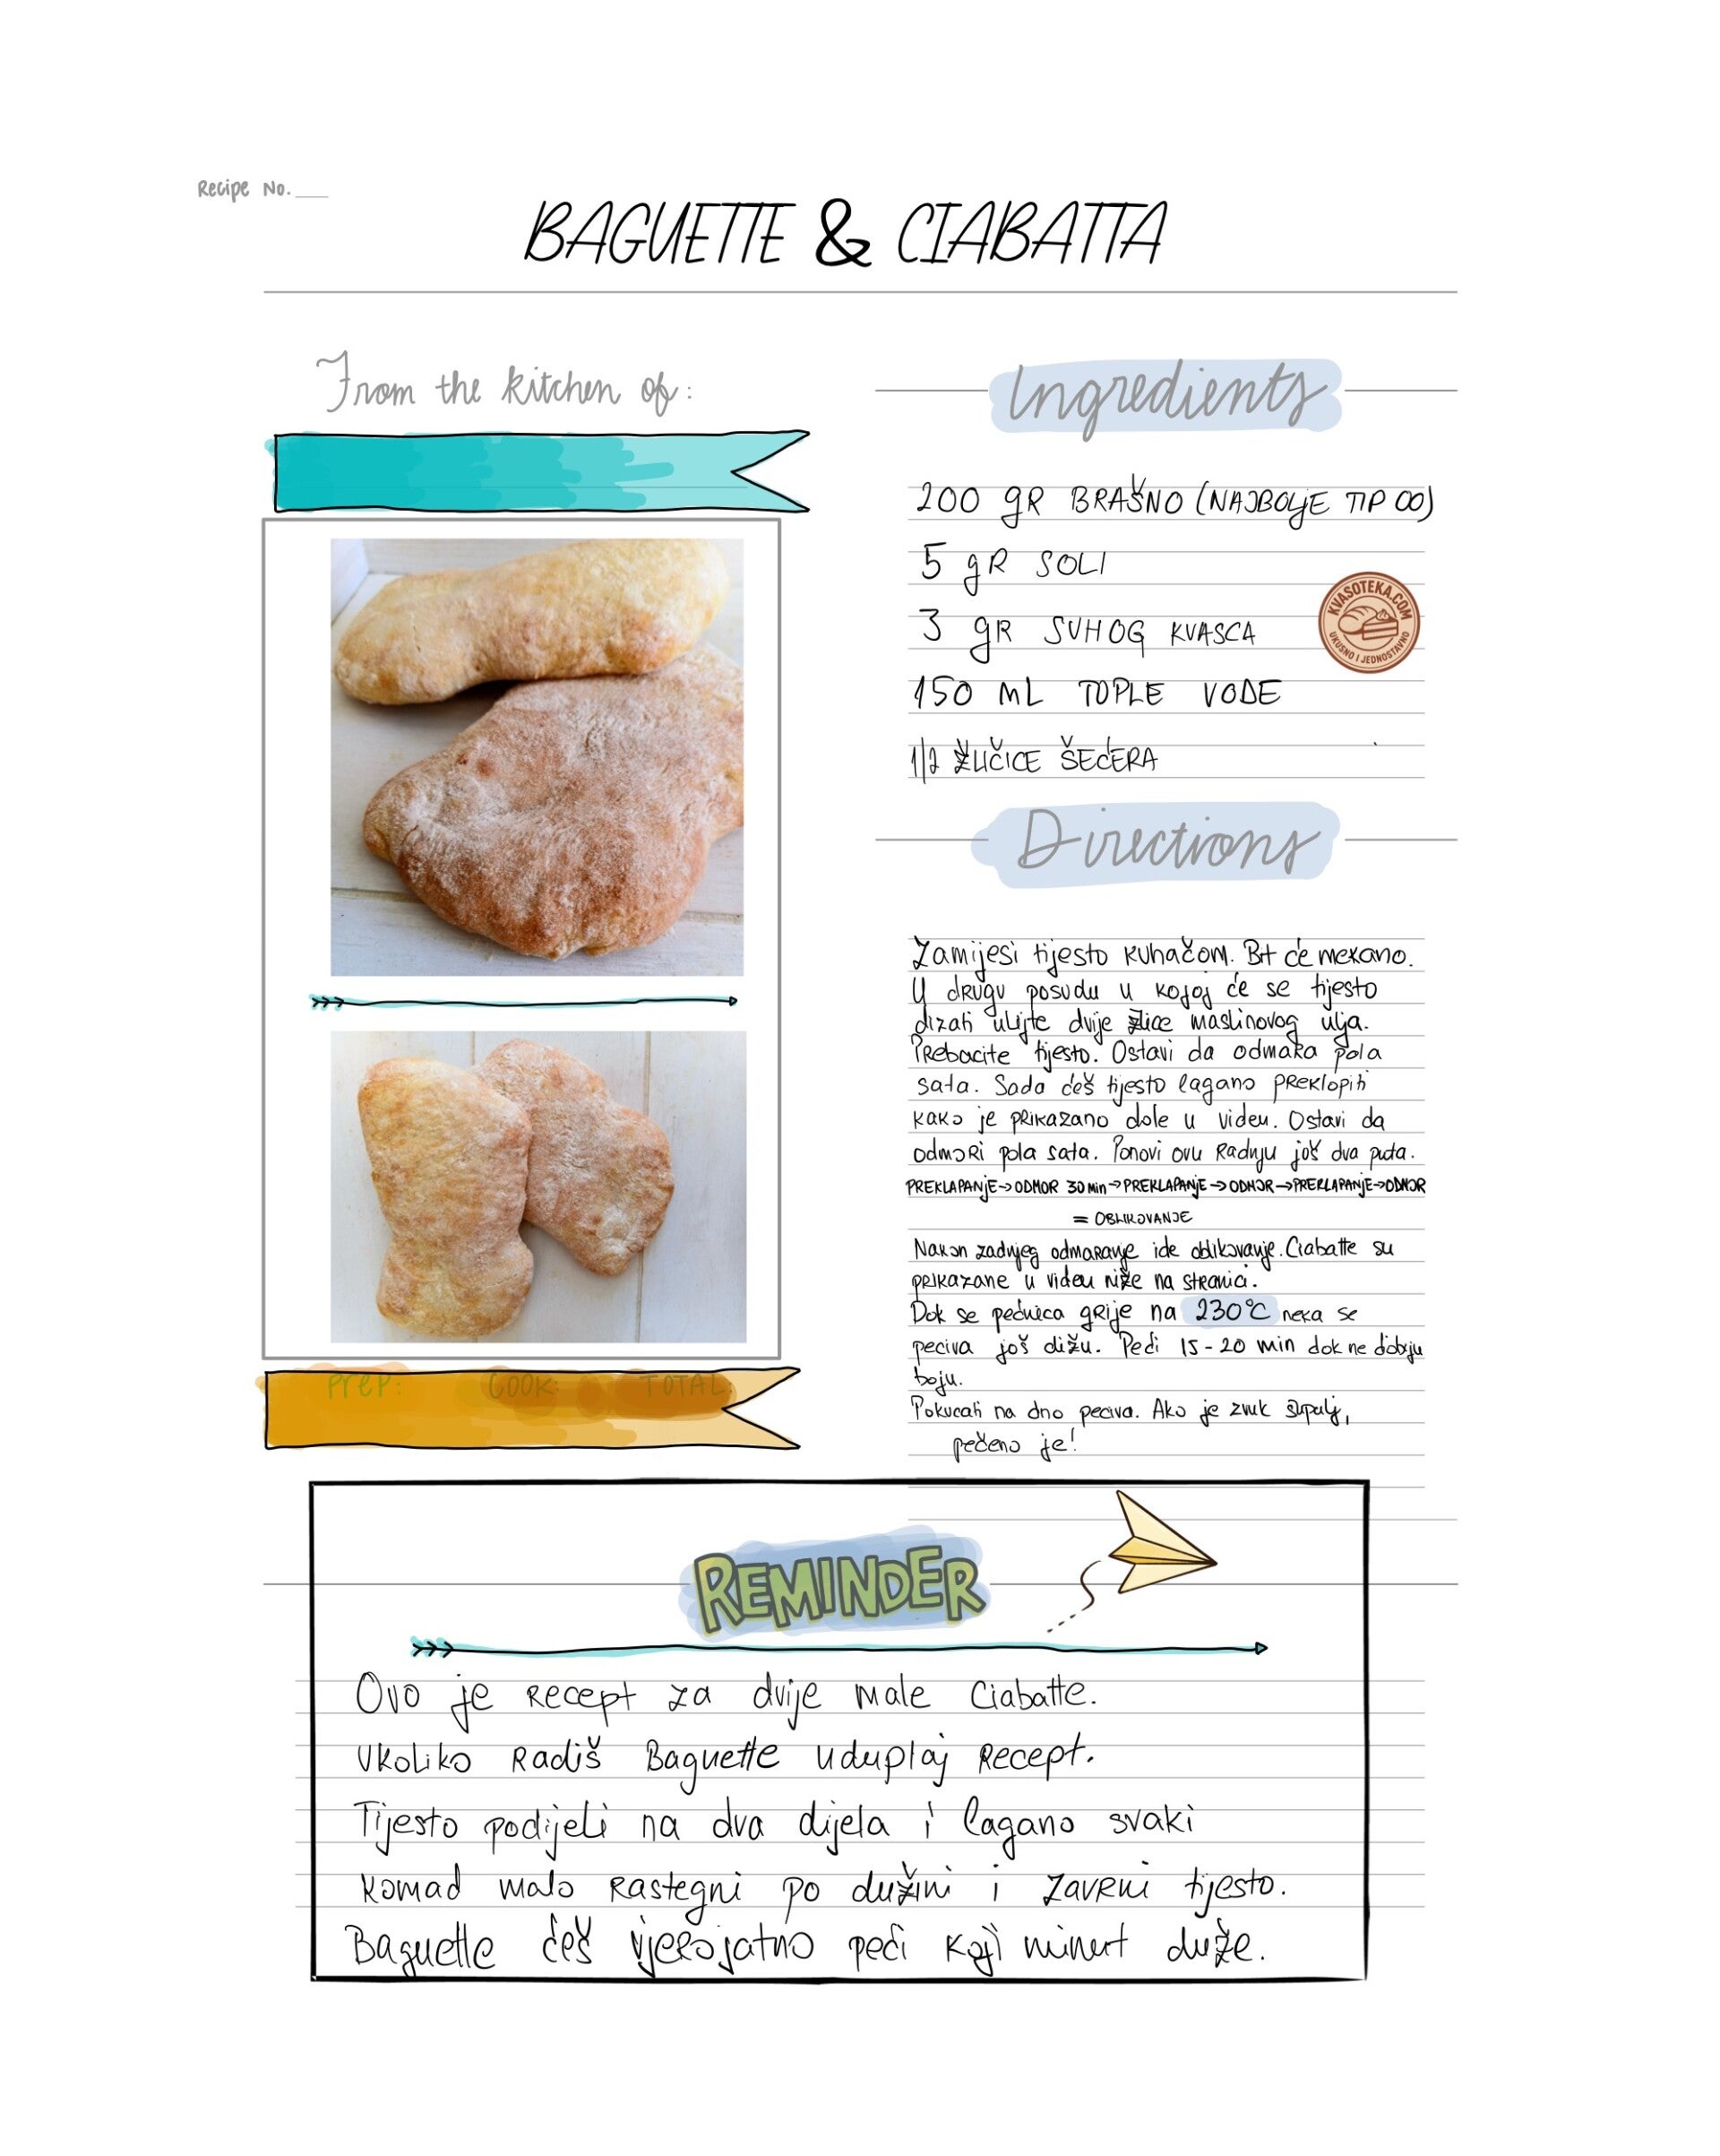 Recipe No.
BAGUETTE & CIABATTA
From the kitchen of:
Prep: COOK: TOTAL:
Ingredients
200 gR BRAŠNO (NAJBOLJE TIP 00)
5 gR SOLI
3 gR SUHOG KVASCA
150 mL TOPLE VODE
1/2 ŽLIČICE ŠEĆERA
KVASOTEKA.COM
UKUSNO I JEDNOSTAVNO
Directions
Zamijesi tijesto kuhačom. Bit će mekano.
U drugu posudu u kojoj će se tijesto
dizati ulijte dvije žlice maslinovog ulja.
Prebacite tijesto. Ostavi da odmara pola
sata. Sada ćeš tijesto lagano preklopiti
kako je prikazano dole u videu. Ostavi da
odmori pola sata. Ponovi ovu radnju još dva puta.
PREKLAPANJE→ODMOR 30 min→PREKLAPANJE→ODMOR→PREKLAPANJE→ODMOR
= OBLIKOVANJE
Nakon zadnjeg odmaranje ide oblikovanje. Ciabatte su
prikazane u videu niže na stranici.
Dok se pećnica grije na 230°C neka se
peciva još dižu. Peći 15-20 min dok ne dobiju
boju.
Pokucati na dno peciva. Ako je zvuk šupalj,
pečeno je!
REMINDER
Ovo je recept za dvije male Ciabatte.
Ukoliko radiš Baguette uduplaj recept.
Tijesto podijeli na dva dijela i lagano svaki
komad malo rastegni po dužini i zavrni tijesto.
Baguette ćeš vjerojatno peći koji minut duže.